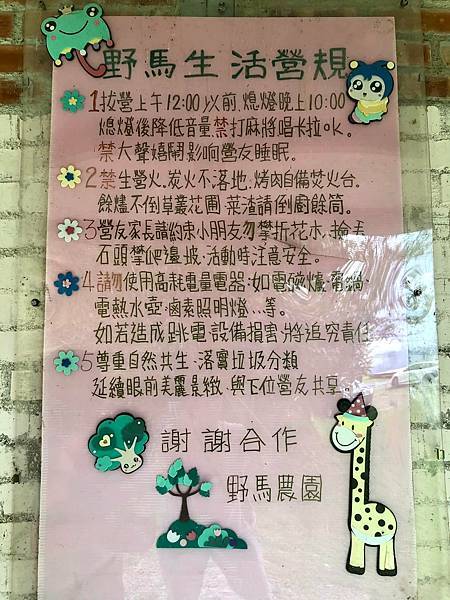 野馬生活營規
1拔營上午12:00以前.熄燈晚上10:00
熄燈後降低音量禁打麻將唱卡拉ok。
禁大聲嬉鬧影响營友睡眠。
2禁生營火.炭火不落地.烤肉自備焚火台.
餘燼不倒草叢花圃.菜渣請倒廚餘筒。
3營友家長請約束小朋友勿攀折花木.撿丢
石頭攀爬邊坡.活動時注意安全。
4請勿使用高耗電量電器:如電磁爐.電鍋.
電熱水壺.鹵素照明燈...等。
如若造成跳電.設備損害.將追究責任
5尊重自然共生、落實垃圾分類
延續眼前美麗景緻.與下位營友共享。
謝謝合作
野馬農園